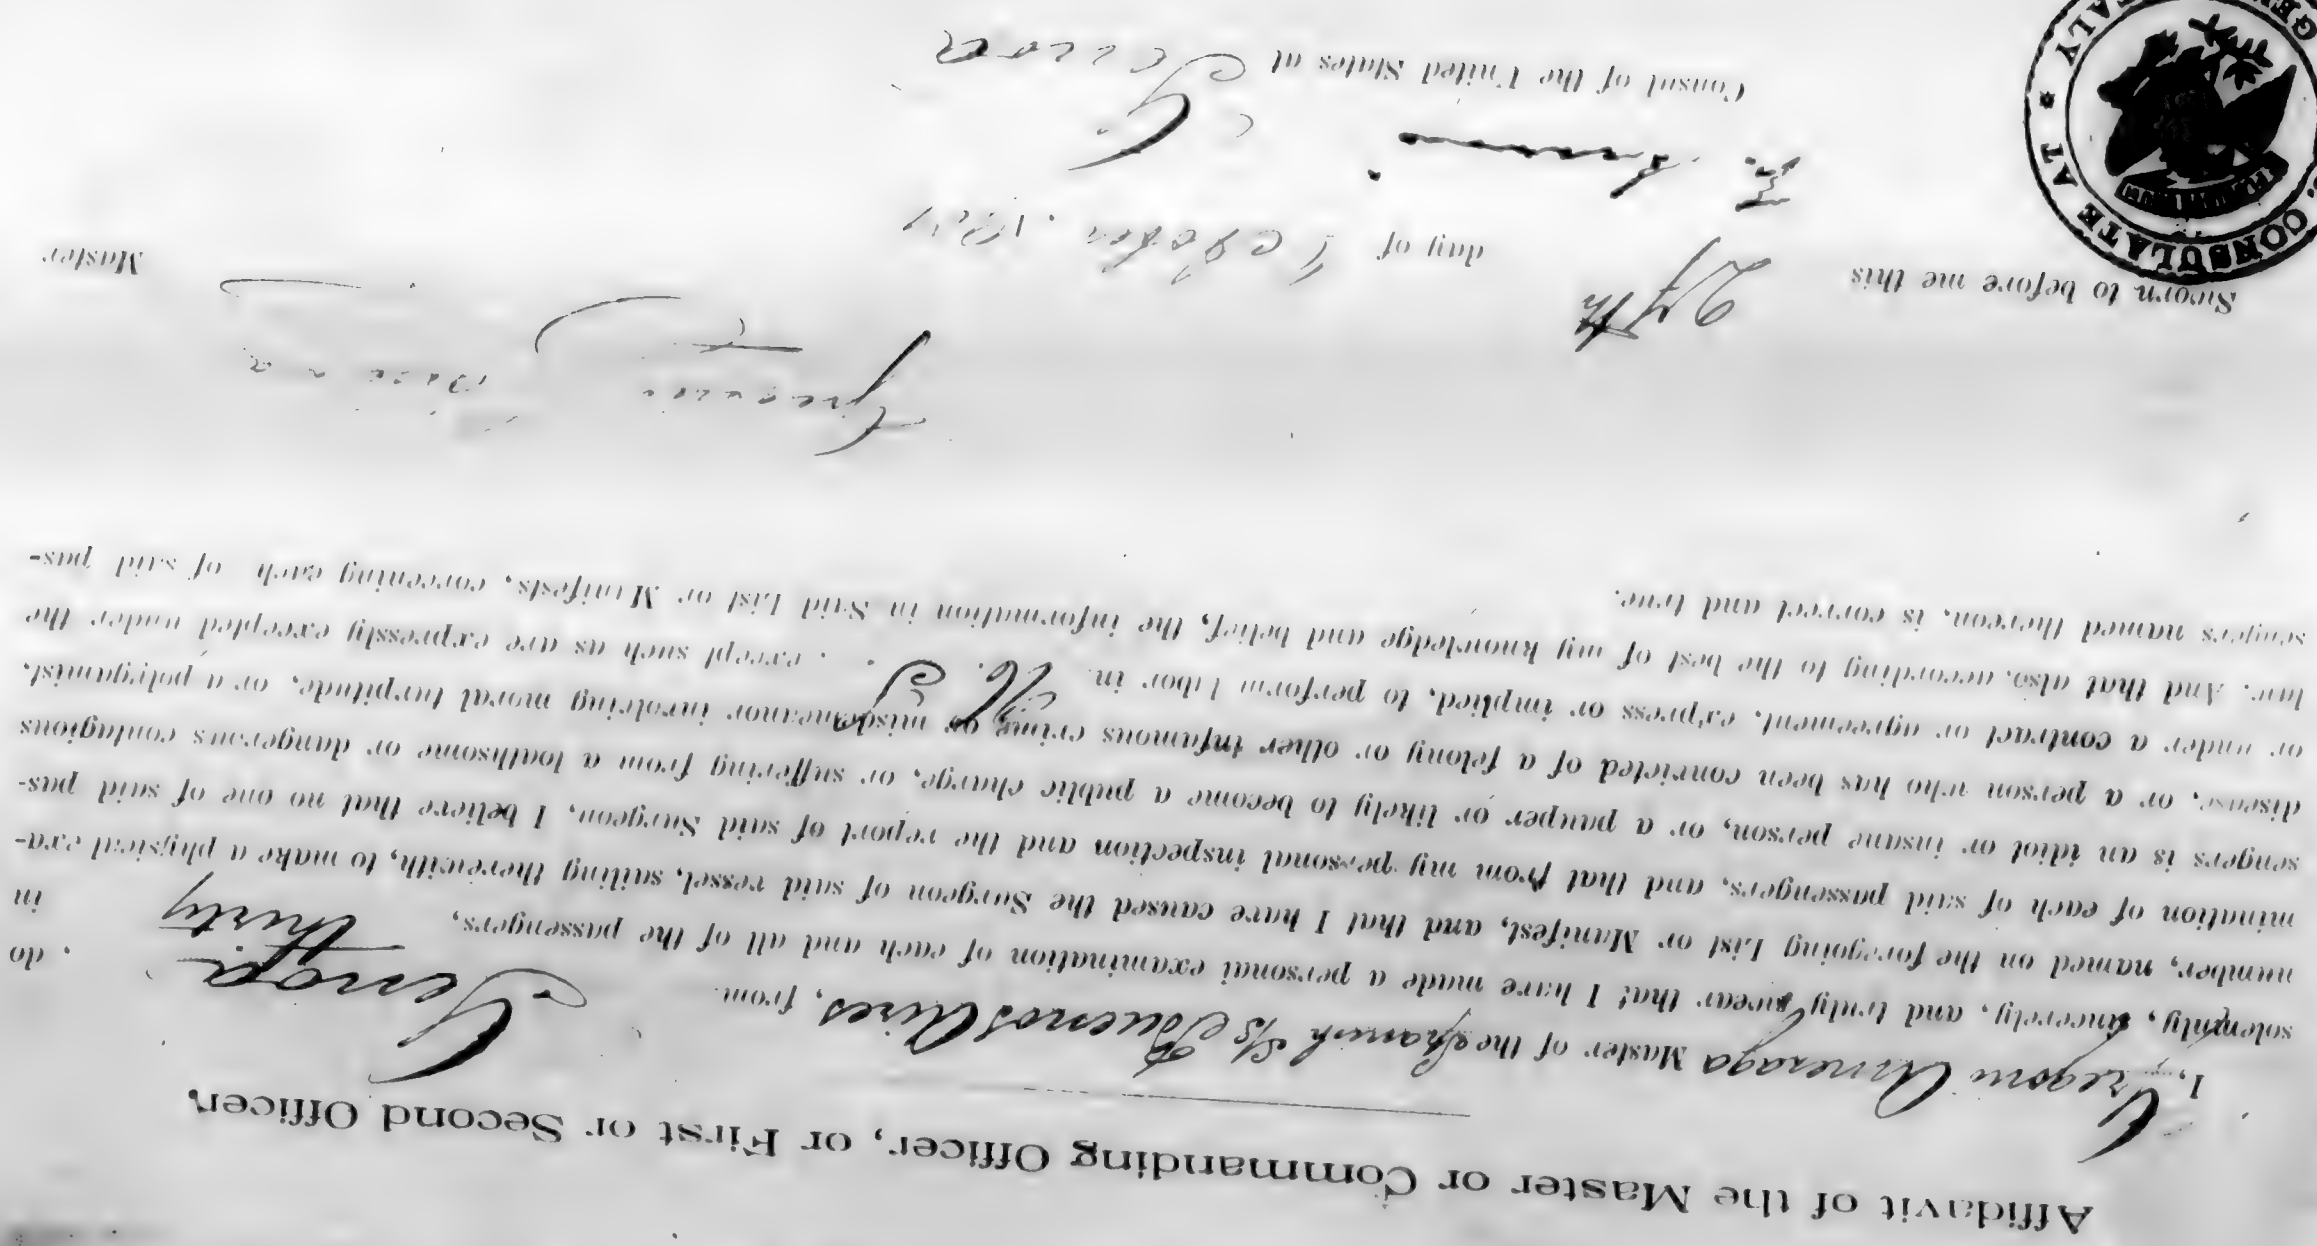 Affidavit of the Master or Commanding Officer, or First or Second Officer.
I, Gregorio Amezaga Master of the Spanish S/S Buenos Aires, from Genoa, do
solemnly, sincerely, and truly swear that I have made a personal examination of each and all of the passengers, thirty in
number, named on the foregoing List or Manifest, and that I have caused the Surgeon of said vessel, sailing therewith, to make a physical exa-
mination of each of said passengers, and that from my personal inspection and the report of said Surgeon, I believe that no one of said pas-
sengers is an idiot or insane person, or a pauper or likely to become a public charge, or suffering from a loathsome or dangerous contagious
disease, or a person who has been convicted of a felony or other infamous crime or misdemeanor involving moral turpitude, or a polygamist,
or under a contract or agreement, express or implied, to perform labor in U. S. except such as are expressly excepted under the
law. And that also, according to the best of my knowledge and belief, the information in Said List or Manifests, correning each of said pas-
sengers named thereon, is correct and true.
Master
Sworn to before me this 27th day of
Consul of the United States at Genoa
CONSULATE AT